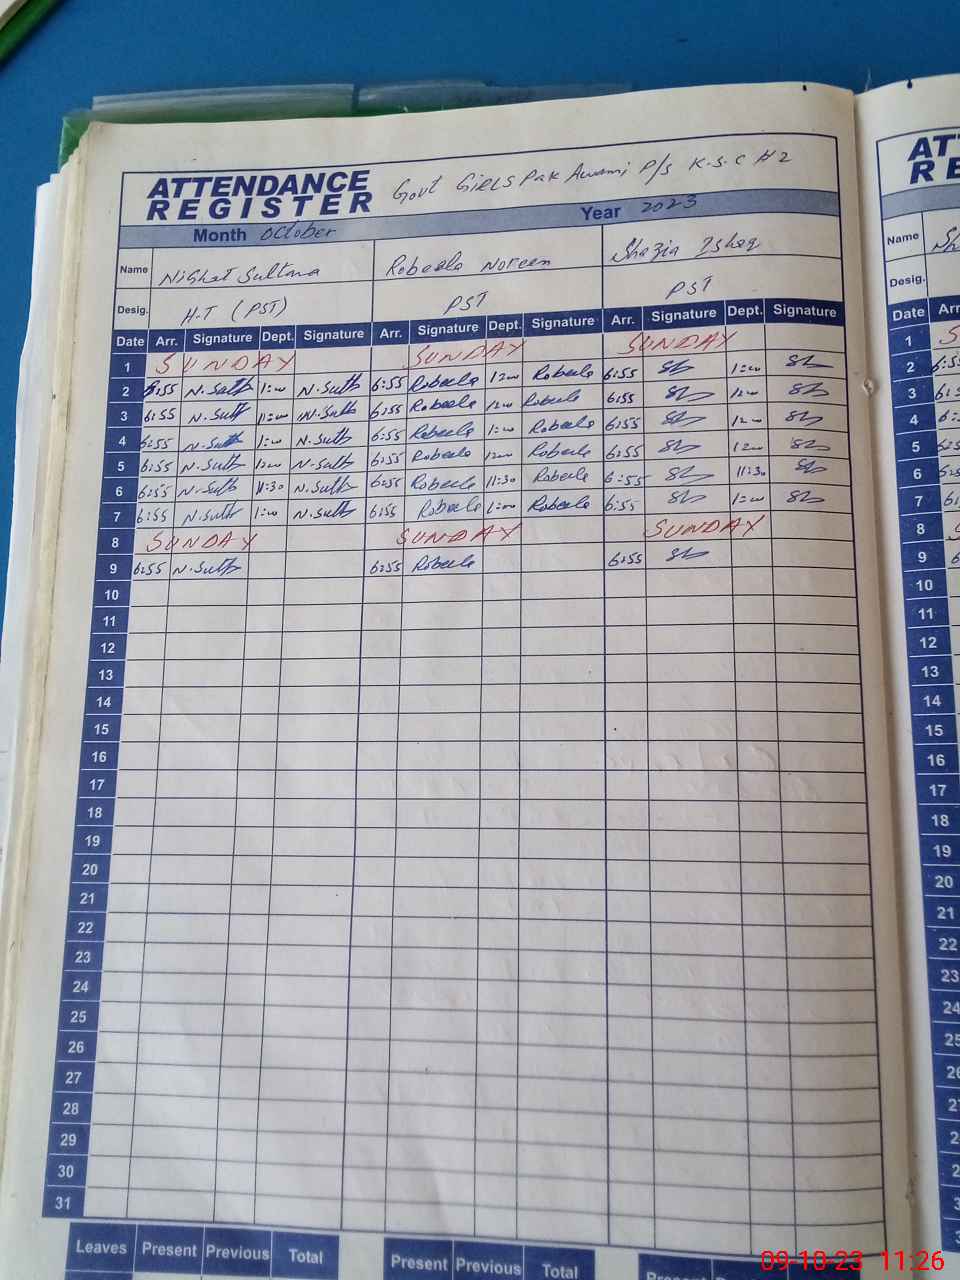 ATTENDANCE REGISTER Govt GIRLS Pak Awami P/S K.S.C H2
Month October Year 2023
Name Nighat Sultana Robeela Noreen Shazia Ishaq
Desig. H.T (PST) PST PST
Date Arr. Signature Dept. Signature Arr. Signature Dept. Signature Arr. Signature Dept. Signature
1 SUNDAY SUNDAY SUNDAY
2 6:55 N.Sult 1:00 N.Sult 6:55 Robeela 1:00 Robeela 6:55 1:00
3 6:55 N.Sult 1:00 N.Sult 6:55 Robeela 1:00 Robeela 6:55 1:00
4 6:55 N.Sult 1:00 N.Sult 6:55 Robeela 1:00 Robeela 6:55 1:00
5 6:55 N.Sult 1:00 N.Sult 6:55 Robeela 1:00 Robeela 6:55 1:00
6 6:55 N.Sult 11:30 N.Sult 6:55 Robeela 11:30 Robeela 6:55 11:30
7 6:55 N.Sult 1:00 N.Sult 6:55 Robeela 1:00 Robeela 6:55 1:00
8 SUNDAY SUNDAY SUNDAY
9 6:55 N.Sult 6:55 Robeela 6:55
10
11
12
13
14
15
16
17
18
19
20
21
22
23
24
25
26
27
28
29
30
31
Leaves Present Previous Total Present Previous Total Present
Name
Desig.
Date
1
2
3
4
5
6
7
8
9
10
11
12
13
14
15
16
17
18
19
20
21
22
23
24
09-10-23 11:26